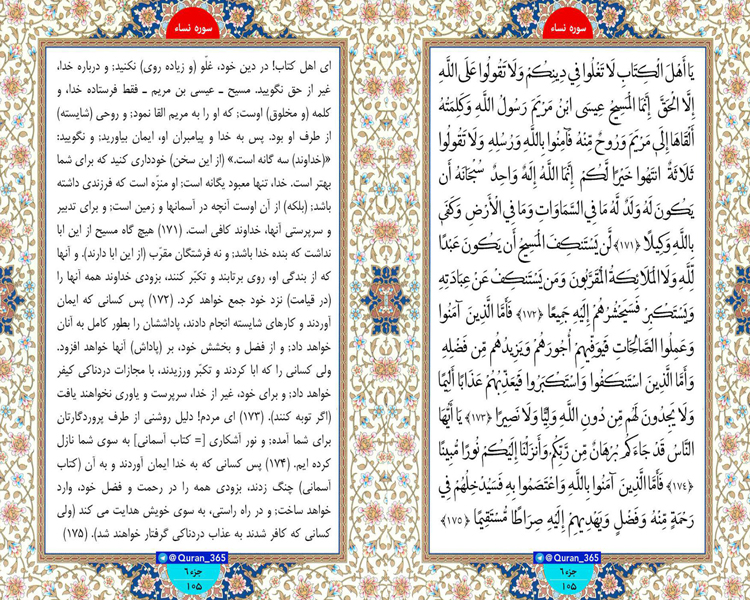 سوره نساء
یَا أَهْلَ الْکِتَابِ لَا تَغْلُوا فِی دِینِکُمْ وَلَا تَقُولُوا عَلَى اللَّهِ
إِلَّا الْحَقَّ إِنَّمَا الْمَسِیحُ عِیسَى ابْنُ مَرْیَمَ رَسُولُ اللَّهِ وَکَلِمَتُهُ
أَلْقَاهَا إِلَى مَرْیَمَ وَرُوحٌ مِّنْهُ فَآمِنُوا بِاللَّهِ وَرُسُلِهِ وَلَا تَقُولُوا
ثَلَاثَةٌ انتَهُوا خَیْرًا لَّکُمْ إِنَّمَا اللَّهُ إِلَهٌ وَاحِدٌ سُبْحَانَهُ أَن
یَکُونَ لَهُ وَلَدٌ لَّهُ مَا فِی السَّمَاوَاتِ وَمَا فِی الْأَرْضِ وَکَفَى
بِاللَّهِ وَکِیلًا ﴿۱۷۱﴾ لَّن یَسْتَنکِفَ الْمَسِیحُ أَن یَکُونَ عَبْدًا
لِّلَّهِ وَلَا الْمَلَائِکَةُ الْمُقَرَّبُونَ وَمَن یَسْتَنکِفْ عَنْ عِبَادَتِهِ
وَیَسْتَکْبِرْ فَسَیَحْشُرُهُمْ إِلَیْهِ جَمِیعًا ﴿۱۷۲﴾ فَأَمَّا الَّذِینَ آمَنُوا
وَعَمِلُوا الصَّالِحَاتِ فَیُوَفِّیهِمْ أُجُورَهُمْ وَیَزِیدُهُم مِّن فَضْلِهِ
وَأَمَّا الَّذِینَ اسْتَنکَفُوا وَاسْتَکْبَرُوا فَیُعَذِّبُهُمْ عَذَابًا أَلِیمًا
وَلَا یَجِدُونَ لَهُم مِّن دُونِ اللَّهِ وَلِیًّا وَلَا نَصِیرًا ﴿۱۷۳﴾ یَا أَیُّهَا
النَّاسُ قَدْ جَاءَکُم بُرْهَانٌ مِّن رَّبِّکُمْ وَأَنزَلْنَا إِلَیْکُمْ نُورًا مُّبِینًا
﴿۱۷۴﴾ فَأَمَّا الَّذِینَ آمَنُوا بِاللَّهِ وَاعْتَصَمُوا بِهِ فَسَیُدْخِلُهُمْ فِی
رَحْمَةٍ مِّنْهُ وَفَضْلٍ وَیَهْدِیهِمْ إِلَیْهِ صِرَاطًا مُّسْتَقِیمًا ﴿۱۷۵﴾
@Quran_365
جزء ۶
۱۰۵
سوره نساء
ای اهل کتاب! در دین خود، غلّو (و زیاده روی) نکنید; و درباره خدا،
غیر از حق نگویید. مسیح ـ عیسی بن مریم ـ فقط فرستاده خدا، و
کلمه (و مخلوق) اوست; که او را به مریم القا نمود; و روحی (شایسته)
از طرف او بود. پس به خدا و پیامبران او، ایمان بیاورید; و نگویید:
«(خداوند) سه گانه است.» (از این سخن) خودداری کنید که برای شما
بهتر است. خدا، تنها معبود یگانه است; او منزّه است که فرزندی داشته
باشد; (بلکه) از آن اوست آنچه در آسمانها و زمین است; و برای تدبیر
و سرپرستی آنها، خداوند کافی است. (۱۷۱) هیچ گاه مسیح از این ابا
نداشت که بنده خدا باشد; و نه فرشتگان مقرّب (از این ابا دارند). و آنها
که از بندگی او، روی برتابند و تکبّر کنند، بزودی خداوند همه آنها را
(در قیامت) نزد خود جمع خواهد کرد. (۱۷۲) پس کسانی که ایمان
آوردند و کارهای شایسته انجام دادند، پاداششان را بطور کامل به آنان
خواهد داد; و از فضل و بخشش خود، بر (پاداش) آنها خواهد افزود.
ولی کسانی را که ابا کردند و تکبّر ورزیدند، با مجازات دردناکی کیفر
خواهد داد; و برای خود، غیر از خدا، سرپرست و یاوری نخواهند یافت
(اگر توبه کنند). (۱۷۳) ای مردم! دلیل روشنی از طرف پروردگارتان
برای شما آمده; و نور آشکاری [= کتاب آسمانی] به سوی شما نازل
کرده ایم. (۱۷۴) پس کسانی که به خدا ایمان آوردند و به آن (کتاب
آسمانی) چنگ زدند، بزودی همه را در رحمت و فضل خود، وارد
خواهد ساخت; و در راه راستی، به سوی خویش هدایت می کند (ولی
کسانی که کافر شدند به عذاب دردناکی گرفتار خواهند شد). (۱۷۵)
@Quran_365
جزء ۶
۱۰۵